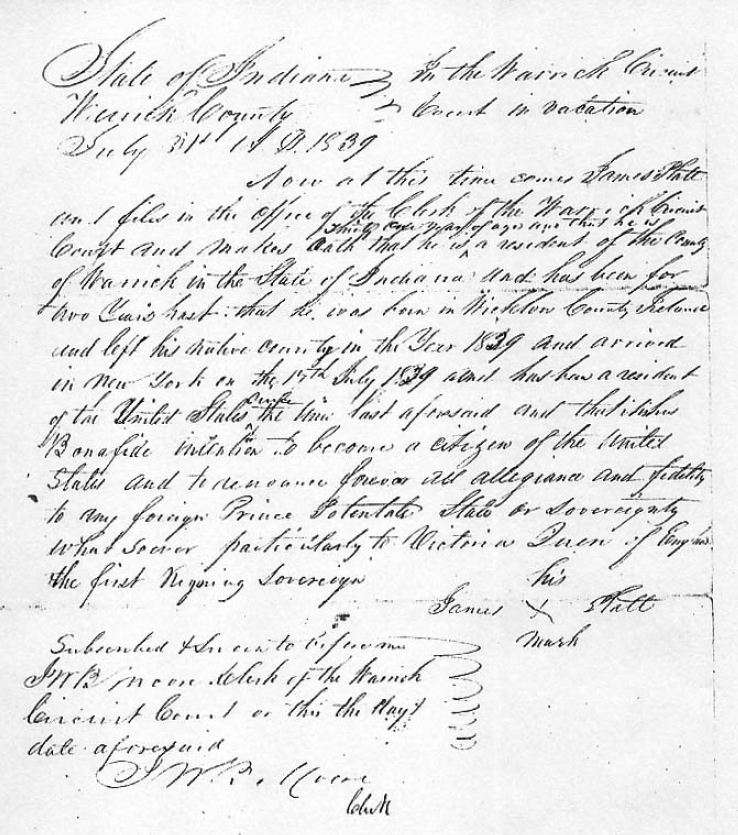 State of Indiana } In the Warrick Circuit
Warrick County } Court in vacation
July 31st A.D. 1839
Now at this time comes James
and files in the office of the Clerk of the Warrick Circuit
thirty one years of age and that he is
Court and makes oath that he is a resident of the County
of Warrick in the State of Indiana and has been for
two Years past that he was born in Wicklow County Ireland
and left his native country in the Year 1829 and arrived
in New York on the 17th July 1829 and has been a resident
since
of the United States the time last aforsaid and that it is his
Bonafide intention to become a citizen of the United
States and to renounce forever all allegiance and fidelity
to any foreign Prince Potentate State or Sovereignty
whatsoever particularly to Victoria Queen of
the first Reigning Sovereign
his
James X
mark
Subscribed & Sworn to before me
J W B Moore Clerk of the Warrick
Circuit Court on this the day &
date aforesaid
J W B. Moore
Clerk